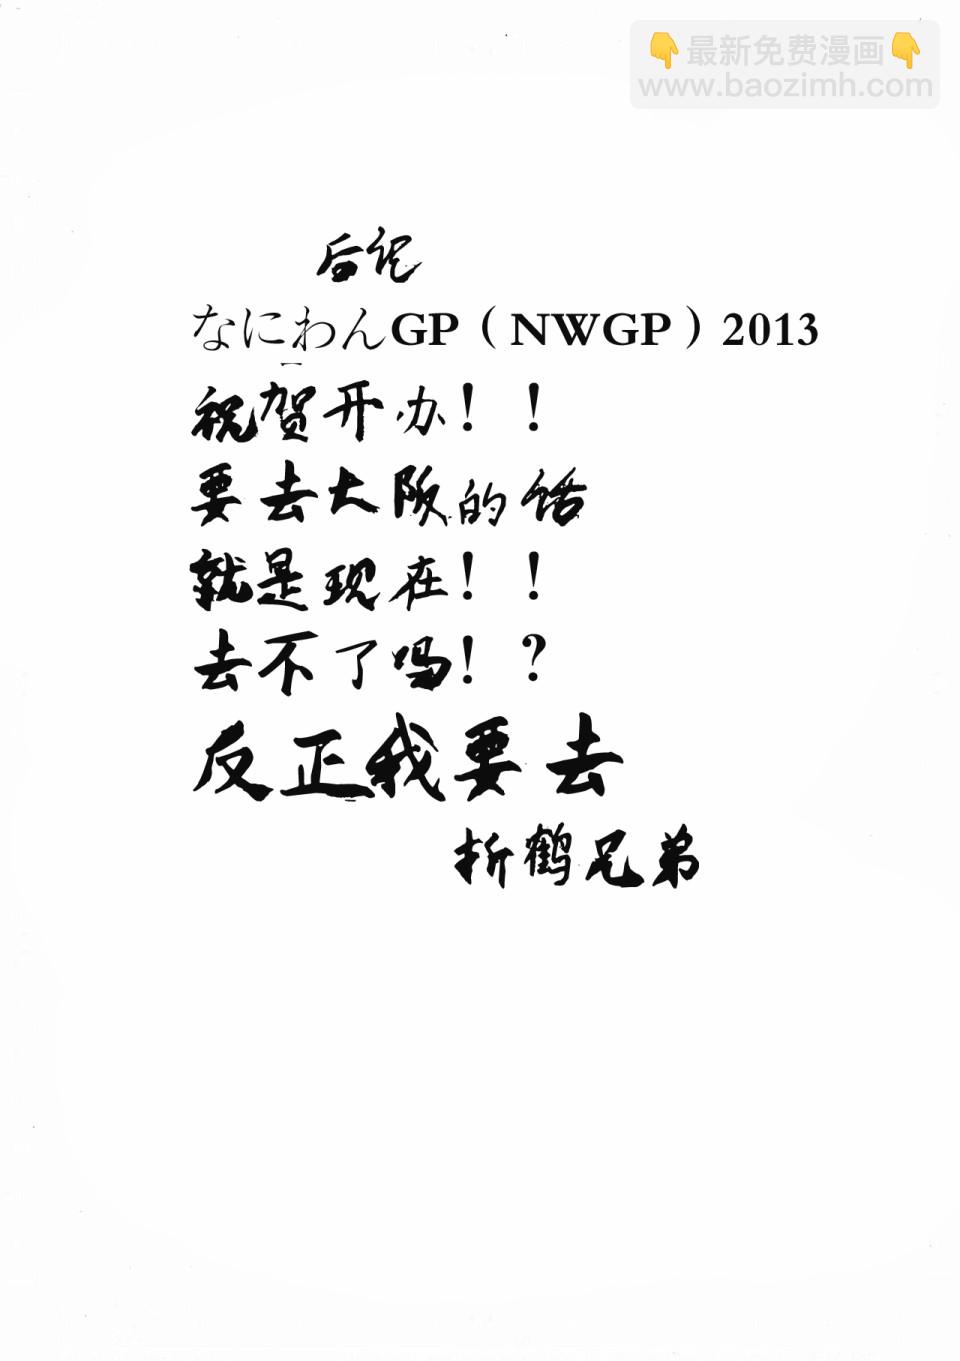 👇最新免费漫画👇
www.baozimh.com
后记
なにわんGP（NWGP）2013
祝贺开办！！
要去大阪的话
就是现在！！
去不了吗！？
反正我要去
折鹤兄弟